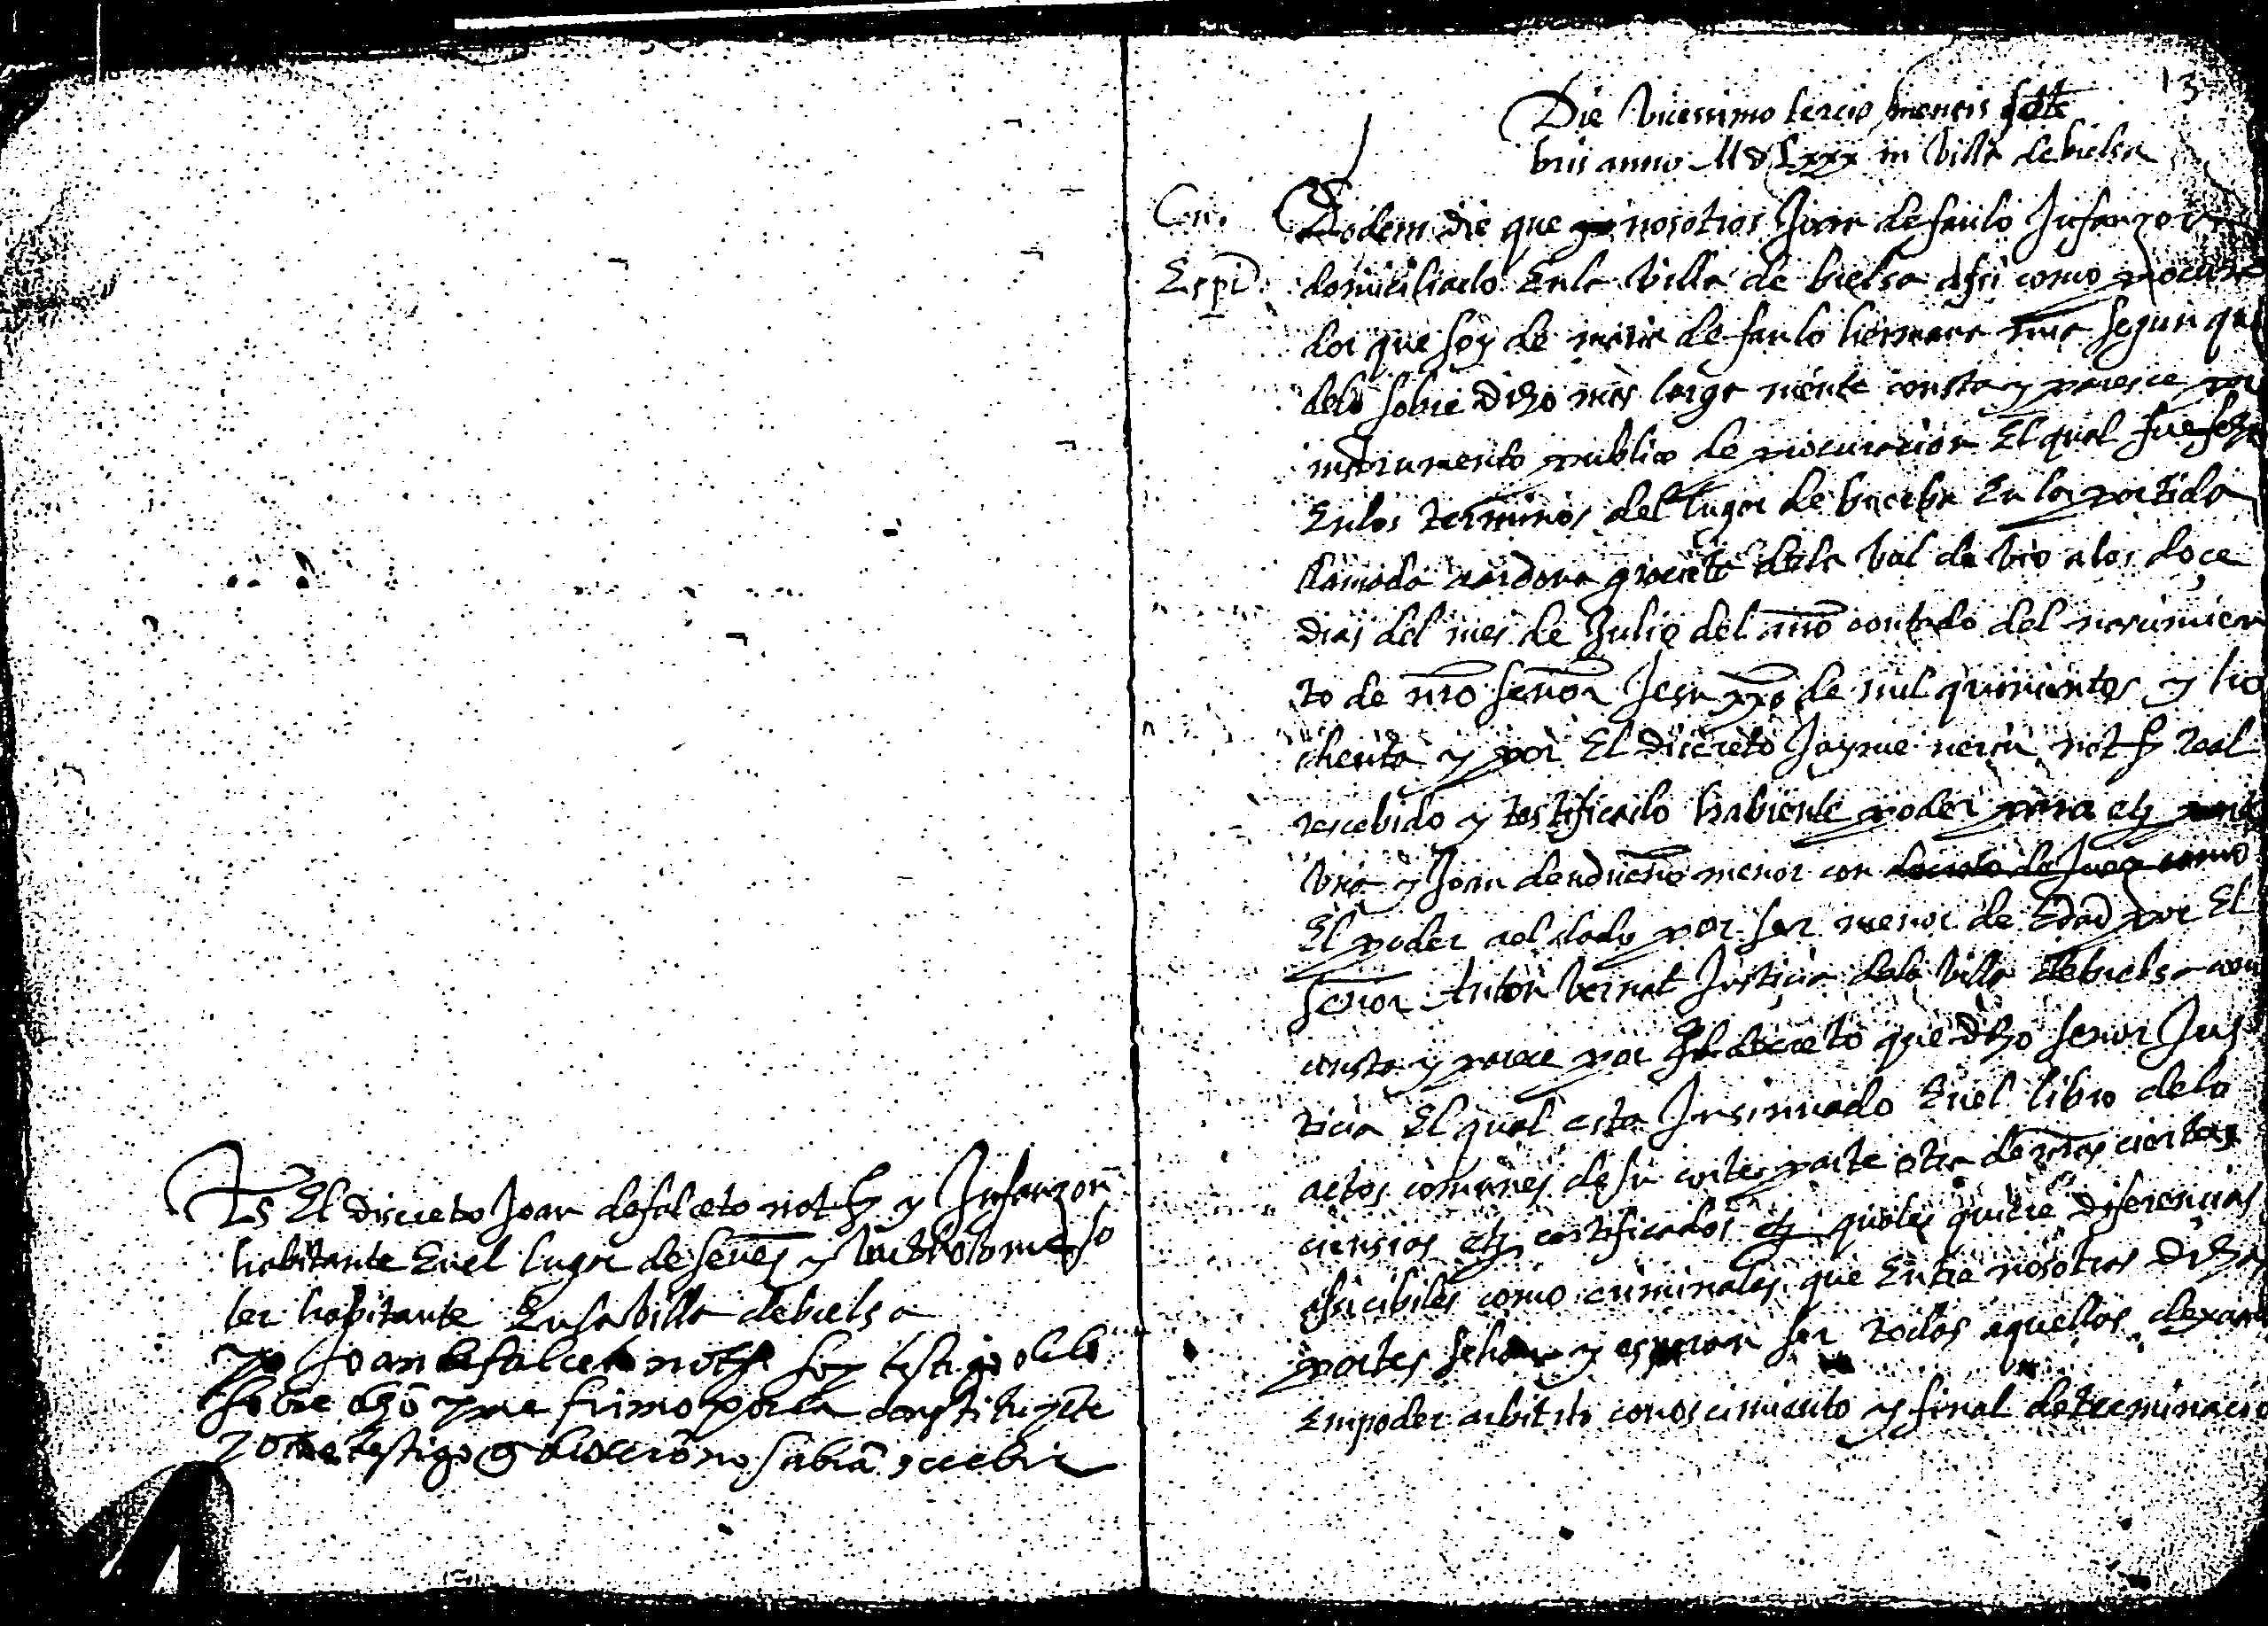 Ts El discreto Joan de falceto not. y Infanzon
habitante Enel lugar de senes y bartholome so
ler habitante En la Villa de bielsa
yo Joan de falceto not. soy testigo de lo
sobre dho y me firmo por la constituyete
y otro testigo q dixeron no sabiã screbir
13
Die Vicessimo tercio mensis septe
bris anno MdLxxx in Villa de bielsa
Com.
Eodem die que nosotros Joan de faulo Infanzon
domiciliado Enla Villa de bielsa assi como procura
dor que soy de maria de faulo hermana mia segun que
delo sobre dicho mas larga mente consta y paresce por
instrumento publico de procuracion El qual fue fecho
Enlos terminos del lugar de En la partida
llamada dela Val de bio a los doce
dias del mes de Julio del año contado del nascimien
to de nro señor Jesu xpo de mil quinientos y ho
chenta y por El discreto Jayme not. Real
recebido y testificado habiente poder para etz
Vna y Joan menor con decreto de Juez como
El poder ael dado por ser menor de Edad por El
señor Anton bernat Justicia dela Villa de bielsa
consta y parece por decreto que dicho señor Jus
ticia El qual esta Insinuado Enel libro delo
actos comunes de su corte parte otra de nras ciertas
ciensias etz certificados etz quales quiere diferencias
assi cibiles como criminales que Entre nosotros dichas
partes se han y esperan ser todas aquellas dexam
Empoder arbitrio conoscimiento y final determinacio